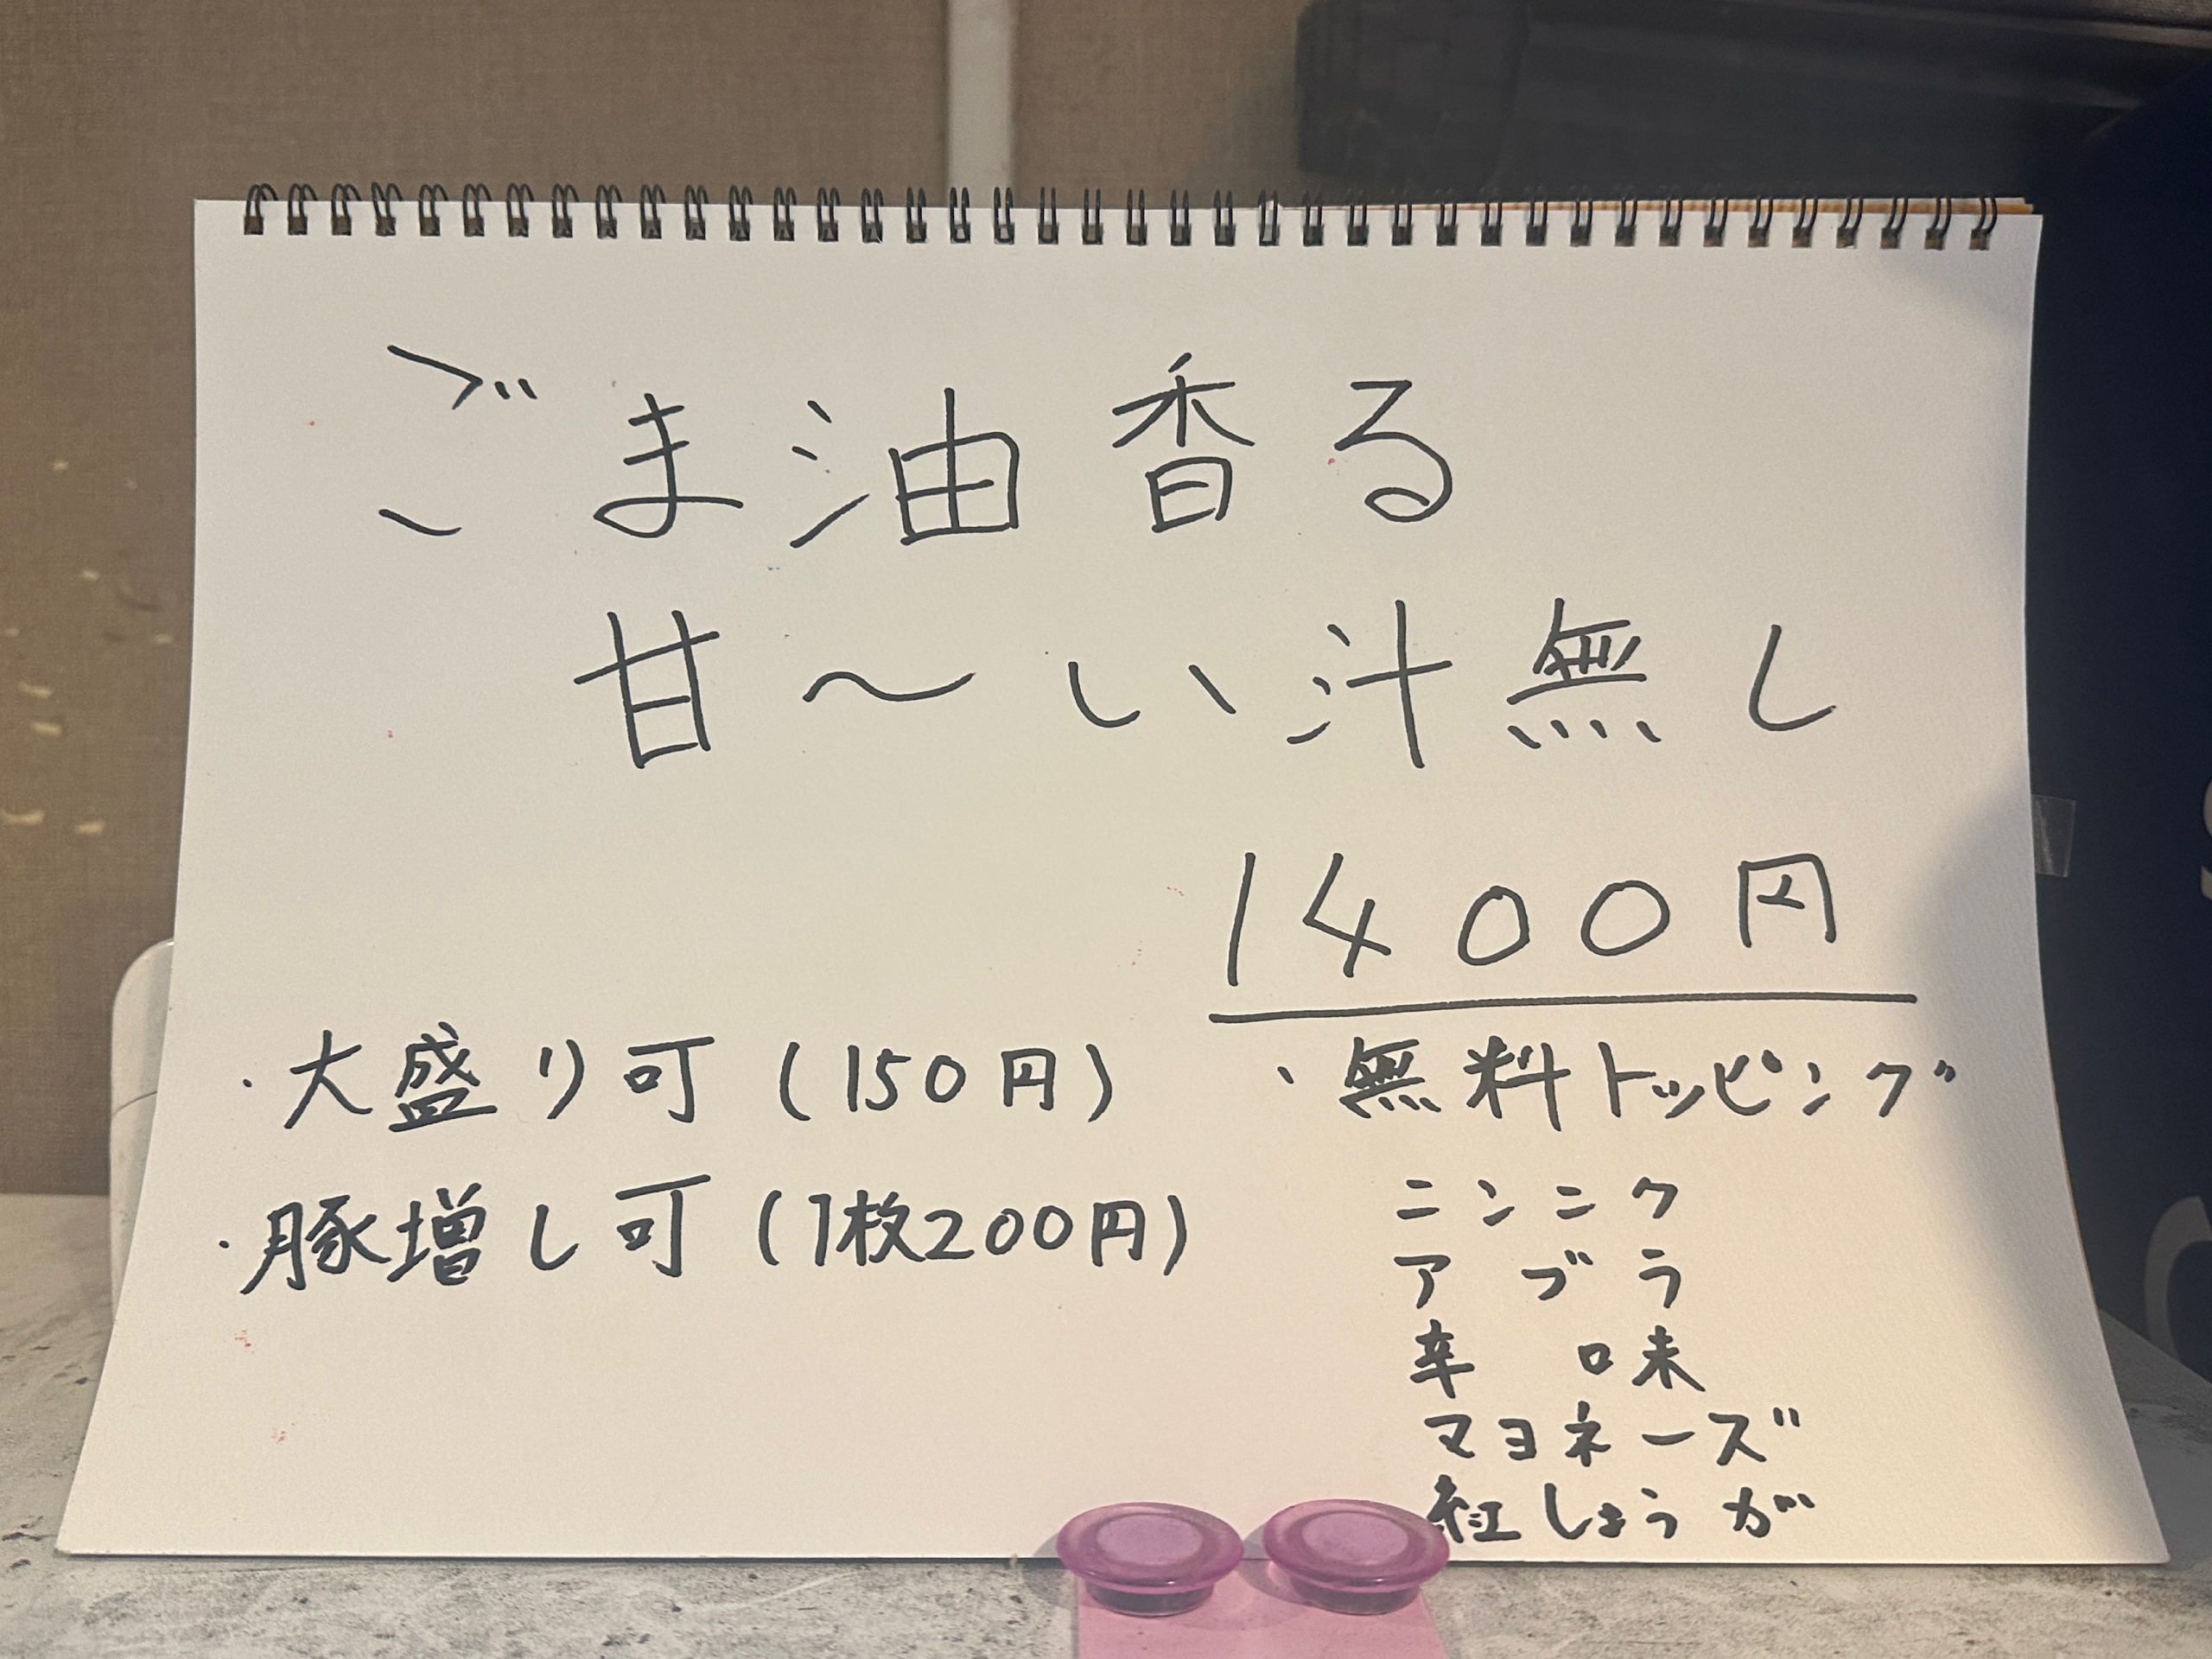 ごま油香る
甘〜い汁無し
1400円
・大盛り可(150円)
・豚増し可(1枚200円)
・無料トッピング
ニンニク
アブラ
辛味
マヨネーズ
紅しょうが